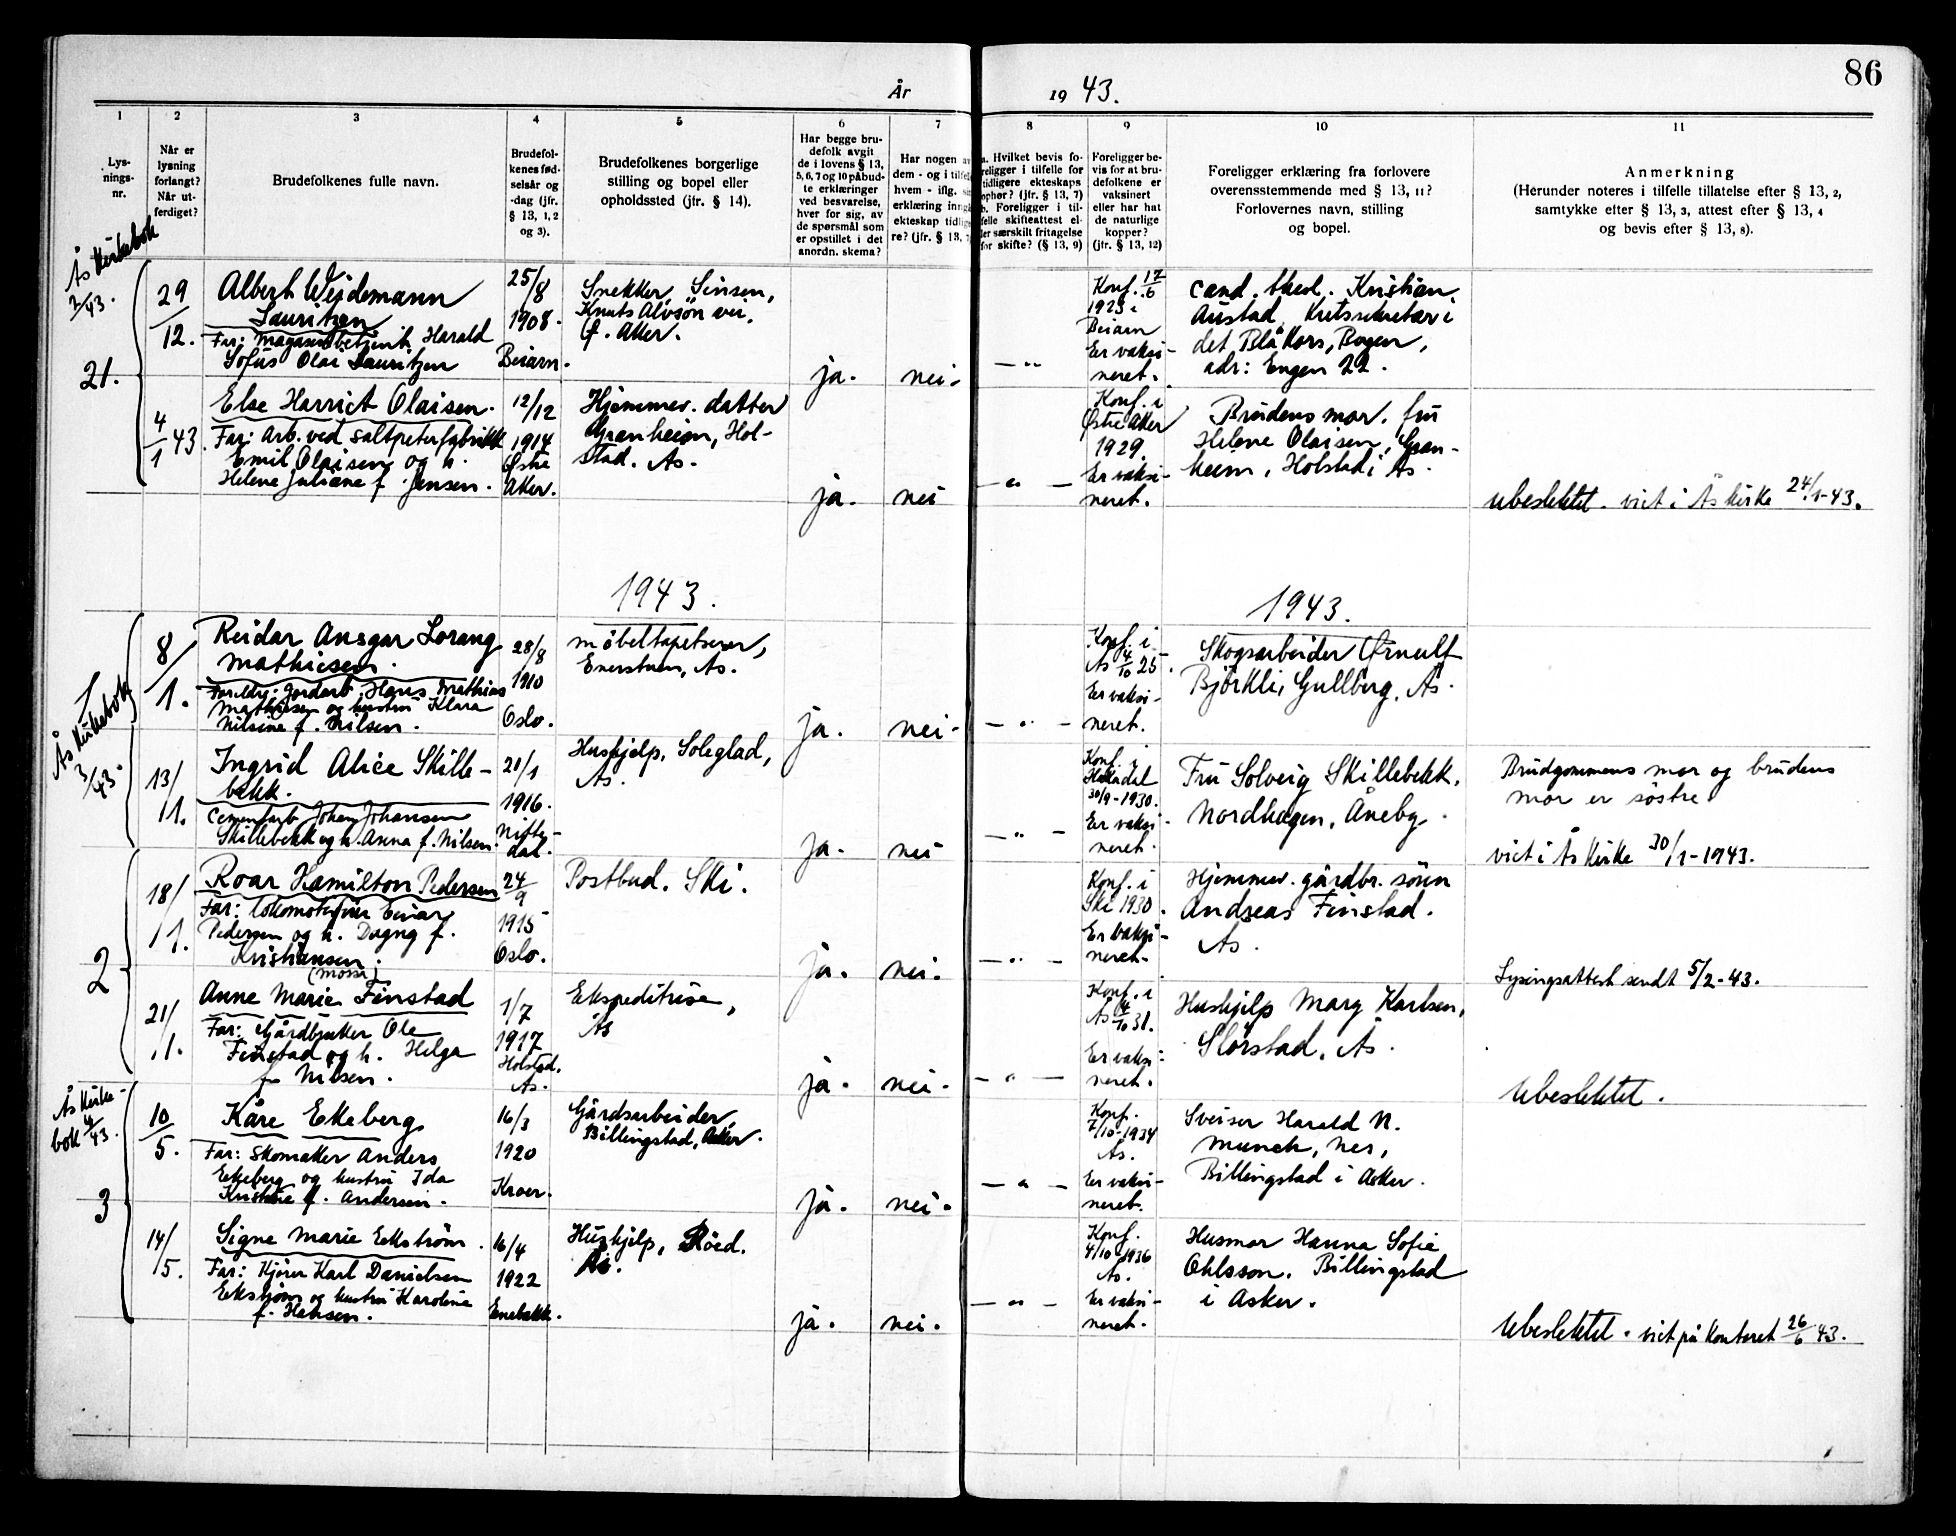 86
År
19 43.
1
2
3
4
5
6
7
8
9
10
11
Lys-
nings-
nr.
Når er
lysning
forlangt?
Når ut-
ferdiget?
Brudefolkenes fulle navn.
Brudefol-
kenes fød-
selsår og
-dag (jfr.
§ 13, 1, 2
og 3).
Brudefolkenes borgerlige
stilling og bopel eller
opholdssted (jfr. § 14).
Har begge bru-
defolk avgit
de i lovens § 13,
5, 6, 7 og 10 påbud-
te erklæringer
ved besvarelse,
hver for sig, av
de spørsmål som
er opstillet i det
anordn. skema?
Har nogen av
dem - og i tilfel
hvem - iflg. si
erklæring inng
ekteskap tidlig
re? (jfr. § 13, 7
a. Hvilket bevis fo-
religger i tilfelle for
tidligere ekteskaps
ophør? (jfr. § 13, 7)
b. Foreligger i til-
felle skifteattest el-
ler særskilt fritagelse
for skifte? (§ 13, 9)
Foreligger be-
vis for at bru-
defolkene er
vaksinert
eller har hat
de naturlige
kopper?
(jfr. § 13, 12)
Foreligger erklæring fra forlovere
overensstemmende med § 13, 11?
Forlovernes navn, stilling
og bopel.
Anmerkning
(Herunder noteres i tilfelle tillatelse efter § 13, 2,
samtykke efter § 13, 3, attest efter § 13, 4
og bevis efter § 13, 8).
Ås Kirkebok
2/43.
21.
29
12.
Albert Weidemann
Lauritzen
Far: Magasinbetjent Harald
Sofus Olai Lauritzen
25/8
1908.
Beiarn.
Snekker, Sinsen,
Knuts Alvsön vei.
Ø. Aker.
ja.
nei.
— " 
Konf. 17/6
1923 i
Beiarn
Er vaksi-
neret.
cand. theol. Kristian
Austad, Kretssekretær i
det Blå Kors, Bogen,
adr: Engen 22.
4
1 43.
Else Harriet Olaisen.
Far: Arb. ved saltpeterfabrikk
Emil Olaisen og h.
Helene Juliane f. Jensen.
12/12
1914
Østre
Aker.
Hjemmev. datter
Granheim, Hol-
stad. Ås.
ja.
nei
— " —
Konf. i
Østre Aker
1929.
Er vaksi-
neret.
Brudens mor. fru
Helene Olaisen, Gran-
heim, Holstad i Ås.
Ubeslektet. viet i Ås Kirke 24/1-43.
1943.
1943.
Ås Kirkebok
3/43.
1
8/
1.
Reidar Ansgar Lorang
Mathiesen.
Foreldre: Jordarb. Hans Mathias
Mathiesen og hustru Klara
Nilsine f. Nilsen.
28/8
1910
Oslo.
Möbeltapetserer,
Enerstuen, Ås.
ja.
nei-
— " —
Konf. i
Ås 4/10 25.
Er vaksi-
neret.
Skogsarbeider Ørnulf
Björkli, Gullberg, Ås.
13/
1.
Ingrid Alice Skille-
bekk.
Cementarb Johan Johansen
Skillebekk og h. Anna f. Nilsen.
20/1
1916.
Nitte-
dal.
Hushjelp, Soleglad,
Ås.
ja.
nei
— " —
Konf. i
Hakadal
30/9-1930.
Er vaksi-
neret.
Fru Solveig Skillebekk.
Nordhagen, Åneby.
Brudgommens mor og brudens
mor er søstre
viet i Ås Kirke 30/1-1943.
2
18/
1.
Roar Hamilton Pedersen
Far: Lokomotivfører Einar
Pedersen og h. Dagny f.
Kristiansen.
24/9
1915
Oslo.
Postbud. Ski.
ja.
nei.
— " —
Konf. i
Ski 1930.
Er vaksi-
neret.
Hjemmev. gårdbr. sönn
Andreas Finstad.
Ås.
Lysingsattest sendt 5/2-43.
21/
1.
(Mossa)
Anne Marie Finstad
Far: Gårdbruker Ole
Finstad og h. Helga
f. Nilsen.
1/7
1917
Holstad.
Ås.
Ekspeditrise,
Ås
ja.
nei.
— " —
Konf. i
Ås 4/10 31.
Er vaksi-
neret.
Hushjelp Mary Karlsen,
Slörstad, Ås.
Ubeslektet.
Ås Kirke-
bok 4/43.
3
10
5.
Kåre Ekeberg
Far: Skomaker Anders
Ekeberg og hustru Ida
Kristine f. Andersen.
16/3
1920
Kroer.
Gårdsarbeider
Billingstad, Asker.
ja.
nei.
— " —
Konf.
7/10-1934
Ås.
Er vaksi-
neret.
Sveiser Harald N.
Munch, Nes,
Billingstad i Asker.
14/
5.
Signe Marie Eekström.
Far: Kjører Karl Danielsen
Eekström og hustru Karoline
f. Hansen.
16/4
1922
Enebakk.
Hushjelp, Röed.
Ås.
ja.
nei.
— " —
Konf.
4/10 1936
Ås.
Er vaksi-
neret.
Husmor Hanna Sofie
Ohlsson. Billingstad
i Asker.
Ubeslektet. viet på kontoret 26/6 43.